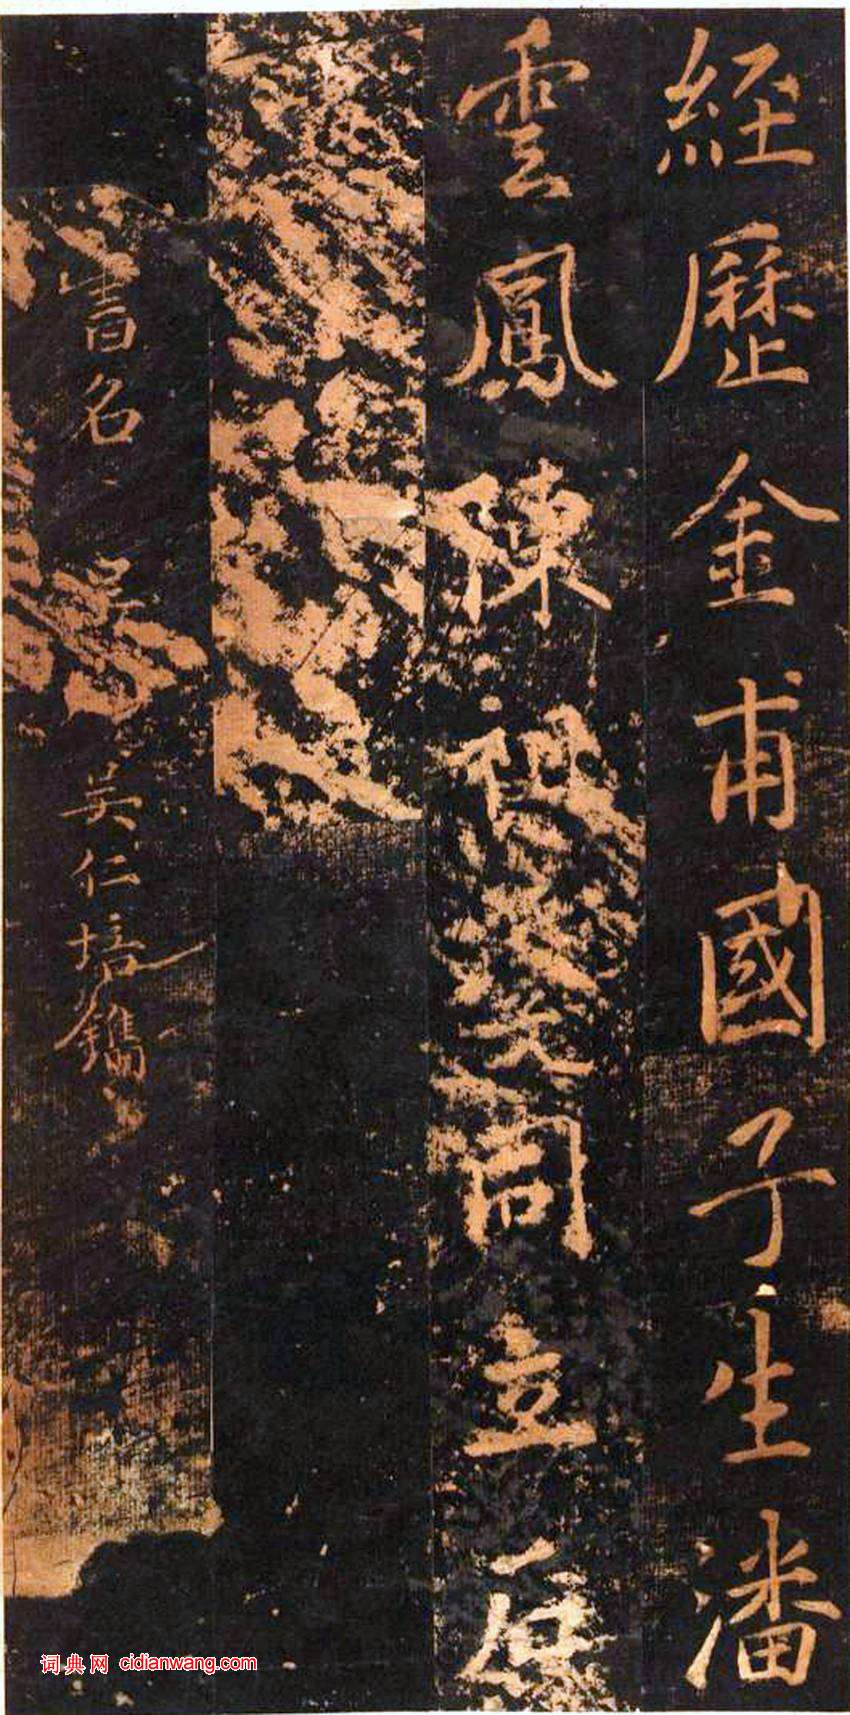 經歷金甫國子生潘
雲鳳陳祖同立石
名
英仁培鐫
词典网 cidianwang.com